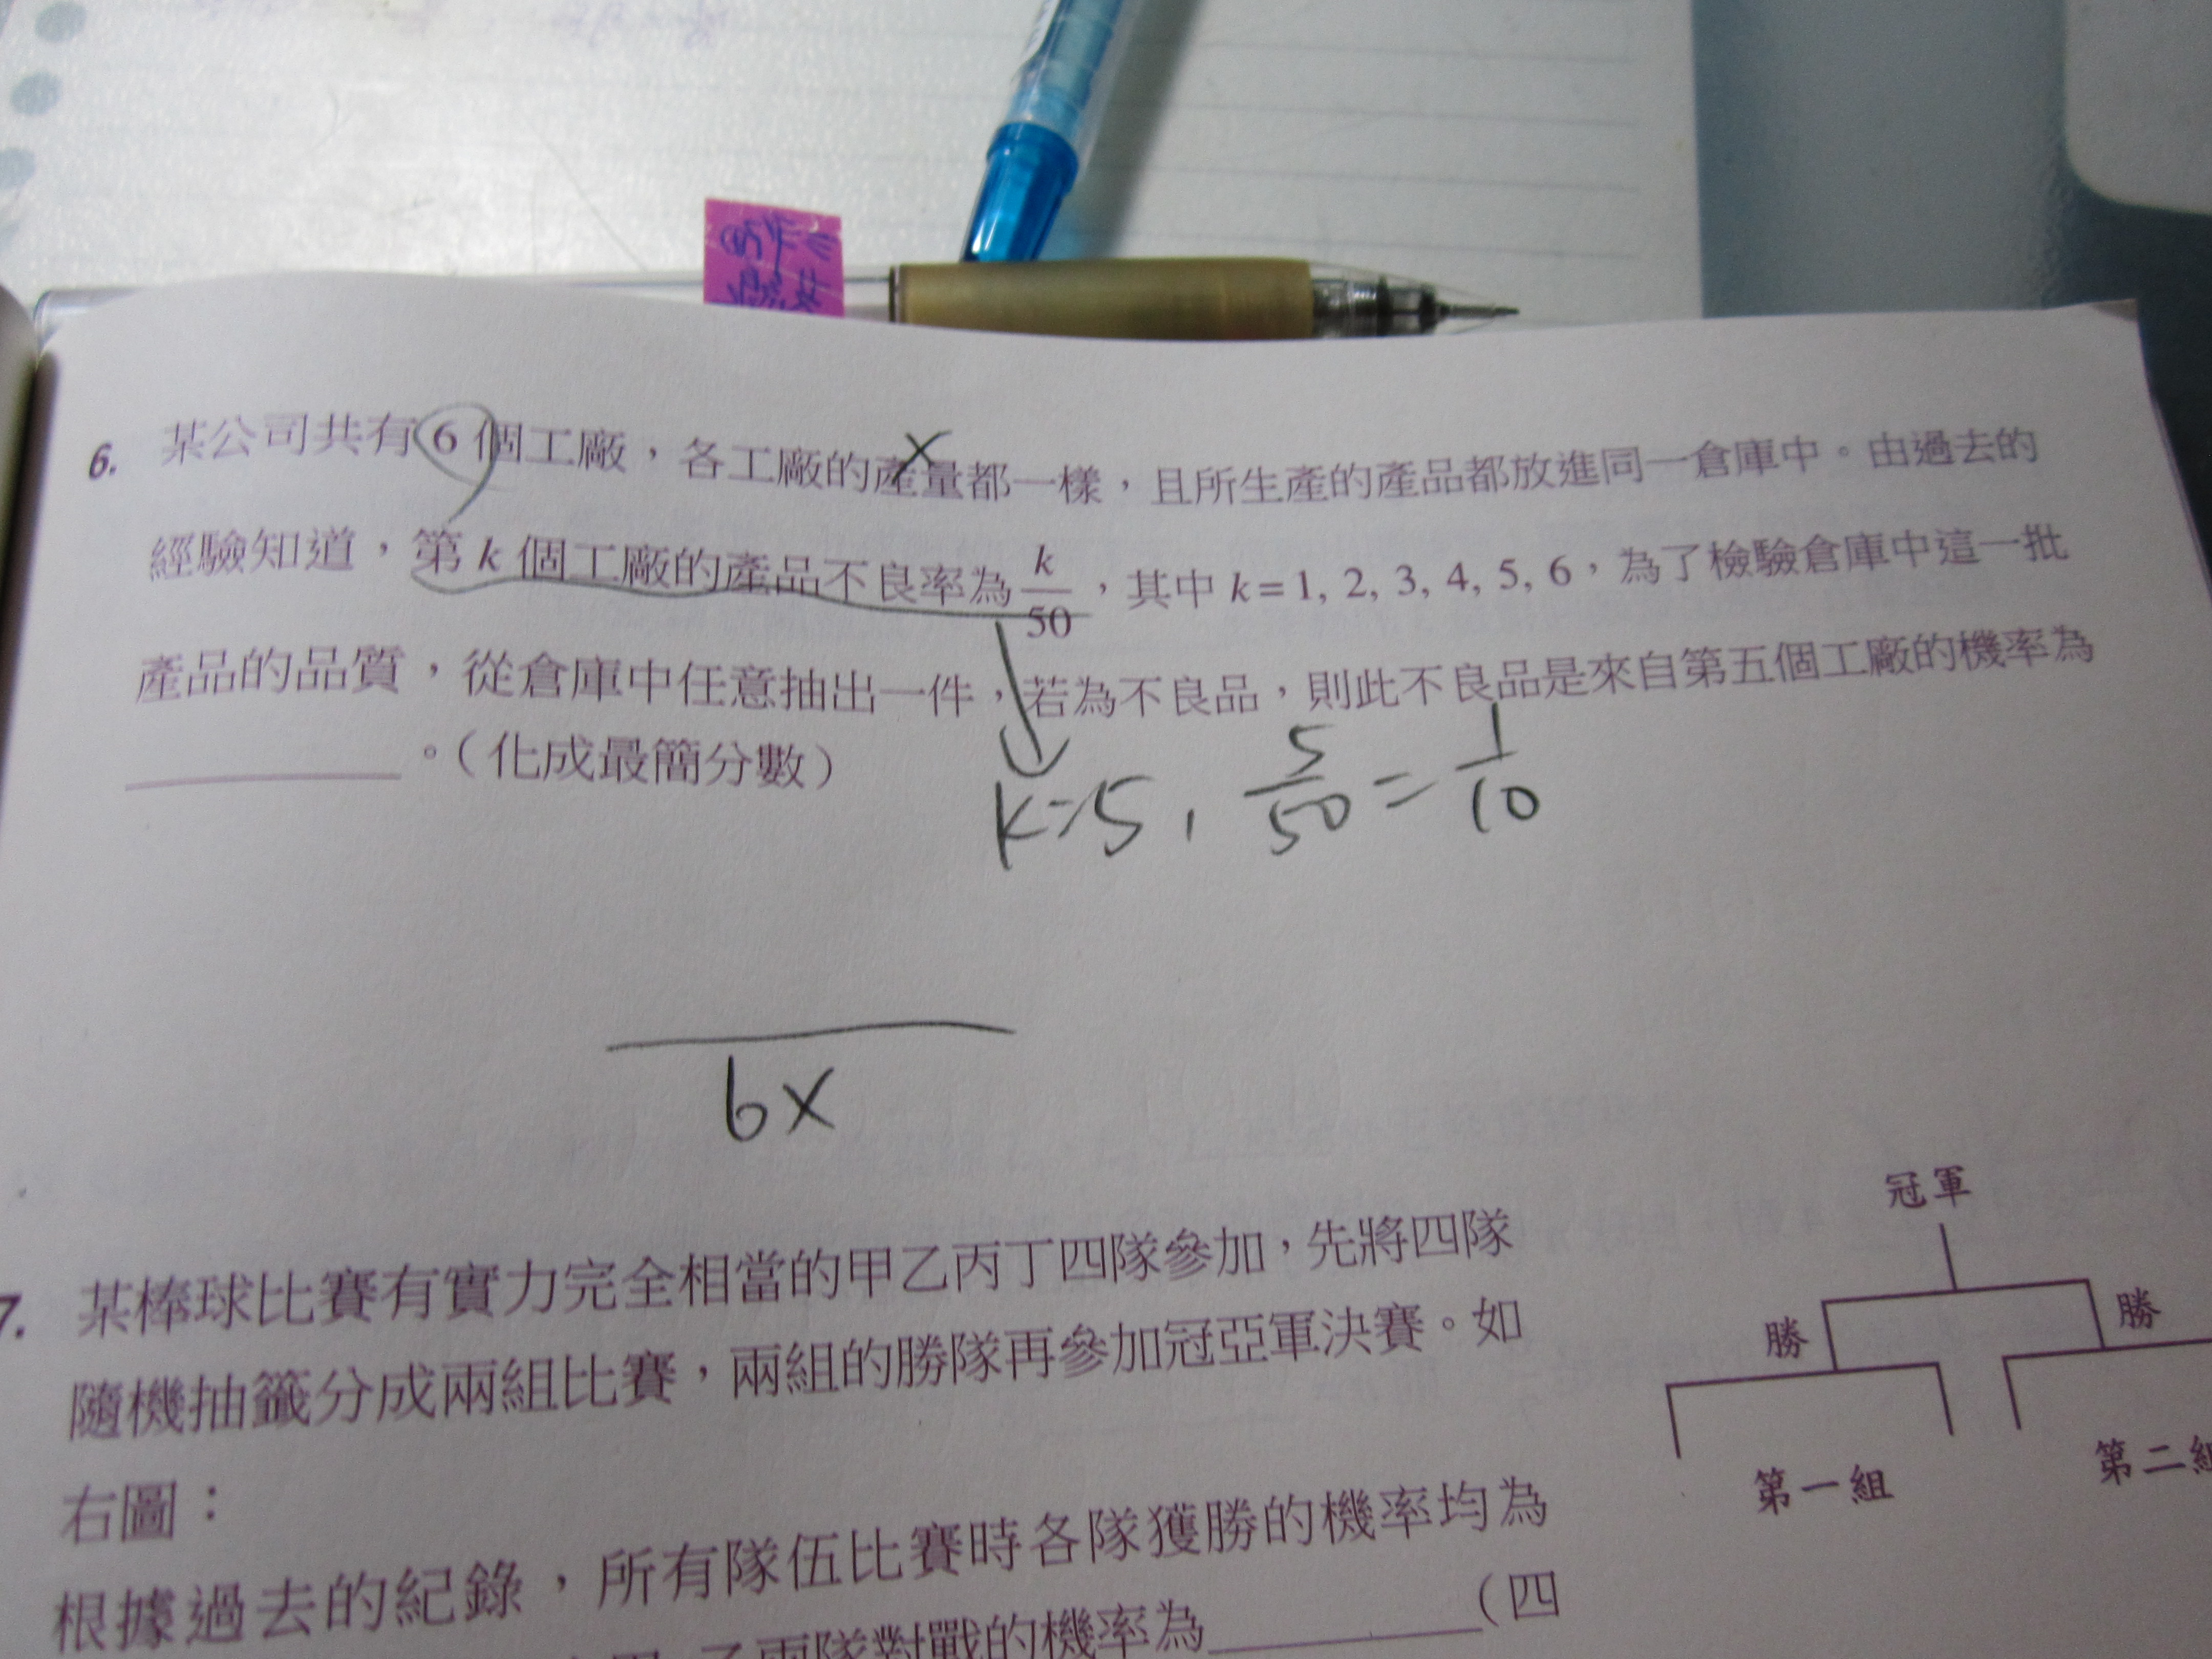 6. 某公司共有6個工廠，各工廠的產量都一樣，且所生產的產品都放進同一倉庫中。由過去的
x
經驗知道，第 k 個工廠的產品不良率為 k/50，其中 k = 1, 2, 3, 4, 5, 6，為了檢驗倉庫中這一批
產品的品質，從倉庫中任意抽出一件，若為不良品，則此不良品是來自第五個工廠的機率為
________。（化成最簡分數）
k=5, 5/50 = 1/10
6x
7. 某棒球比賽有實力完全相當的甲乙丙丁四隊參加，先將四隊
隨機抽籤分成兩組比賽，兩組的勝隊再參加冠亞軍決賽。如
右圖：
根據過去的紀錄，所有隊伍比賽時各隊獲勝的機率均為
兩隊對戰的機率為________（四
冠軍
勝
勝
第一組
第二組